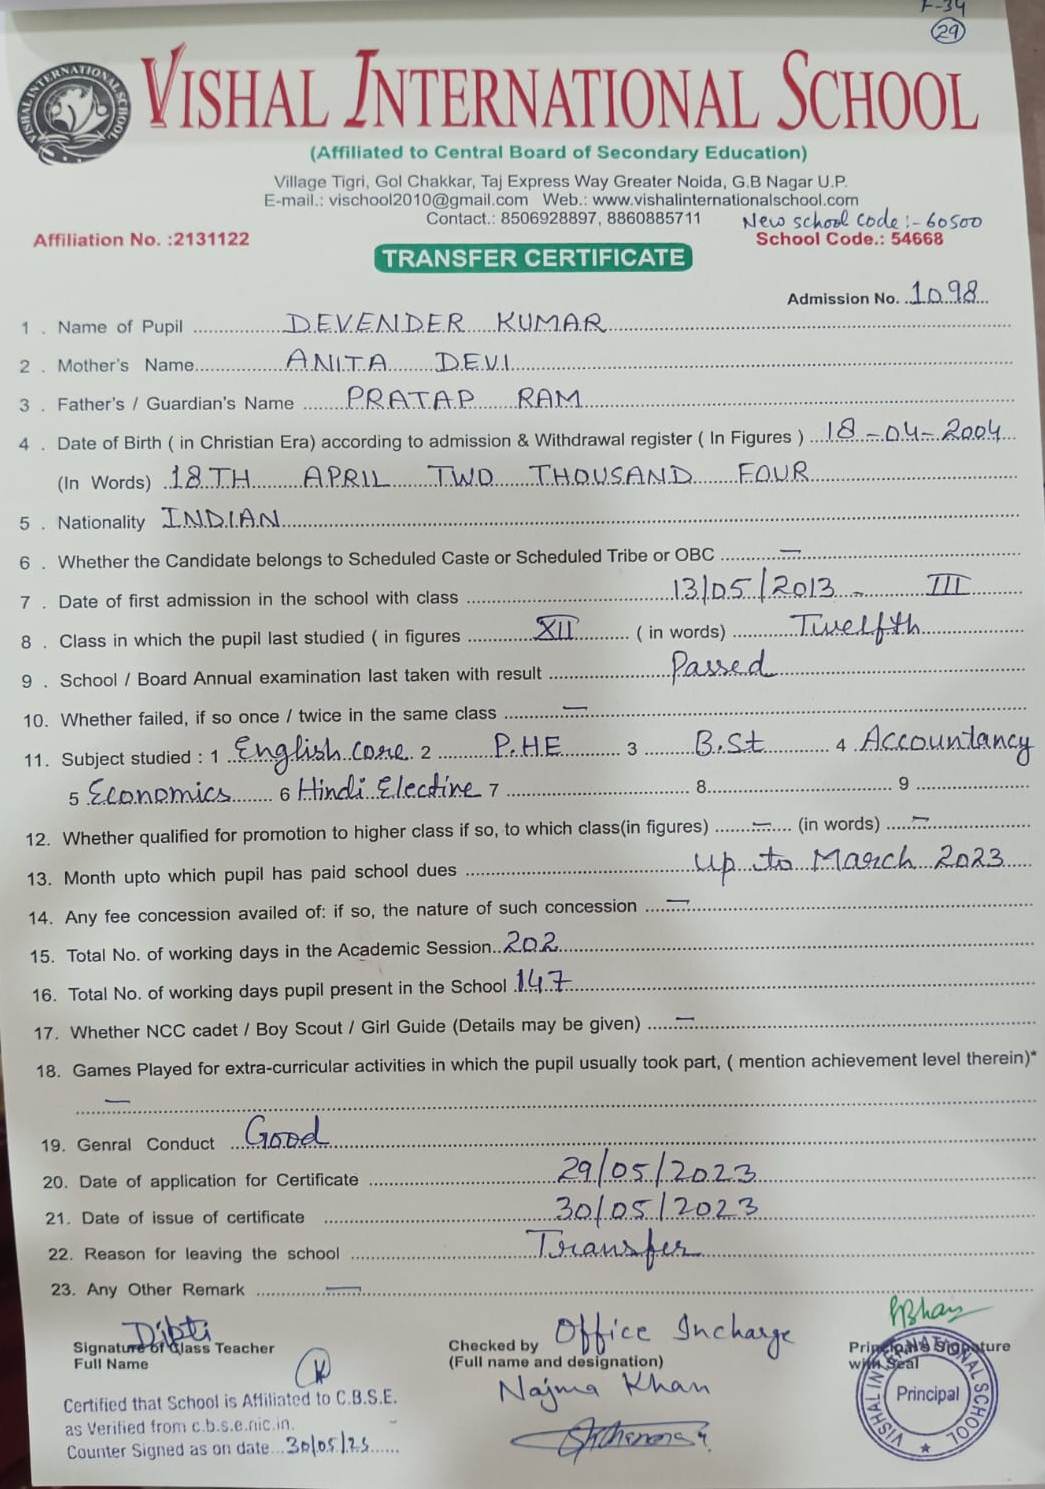 F-34
29
VISHAL INTERNATIONAL SCHOOL
VISHAL INTERNATIONAL SCHOOL
(Affiliated to Central Board of Secondary Education)
Village Tigri, Gol Chakkar, Taj Express Way Greater Noida, G.B Nagar U.P.
E-mail.: vischool2010@gmail.com Web.: www.vishalinternationalschool.com
Contact.: 8506928897, 8860885711 New school code :- 60500
Affiliation No. :2131122 School Code.: 54668
TRANSFER CERTIFICATE
Admission No. 1098
1 . Name of Pupil DEVENDER KUMAR
2 . Mother's Name ANITA DEVI
3 . Father's / Guardian's Name PRATAP RAM
4 . Date of Birth ( in Christian Era) according to admission & Withdrawal register ( In Figures ) 18-04-2004
(In Words) 18TH APRIL TWO THOUSAND FOUR
5 . Nationality INDIAN
6 . Whether the Candidate belongs to Scheduled Caste or Scheduled Tribe or OBC —
7 . Date of first admission in the school with class 13/05/2013 - III
8 . Class in which the pupil last studied ( in figures XII ( in words) Twelfth
9 . School / Board Annual examination last taken with result Passed
10. Whether failed, if so once / twice in the same class —
11. Subject studied : 1 English core 2 P.HE 3 B.St 4 Accountancy
5 Economics 6 Hindi Elective 7 8 9
12. Whether qualified for promotion to higher class if so, to which class(in figures) — (in words) —
13. Month upto which pupil has paid school dues up to March 2023
14. Any fee concession availed of: if so, the nature of such concession —
15. Total No. of working days in the Academic Session 202
16. Total No. of working days pupil present in the School 147
17. Whether NCC cadet / Boy Scout / Girl Guide (Details may be given) —
18. Games Played for extra-curricular activities in which the pupil usually took part, ( mention achievement level therein)*
—
19. Genral Conduct Good
20. Date of application for Certificate 29/05/2023
21. Date of issue of certificate 30/05/2023
22. Reason for leaving the school Transfer
23. Any Other Remark —
Dipti
Signature of Class Teacher
Full Name
Checked by Office Incharge
(Full name and designation)
Najma Khan
Principal's Signature
with Seal
VISHAL INTERNATIONAL SCHOOL
Principal
Certified that School is Affiliated to C.B.S.E.
as Verified from c.b.s.e.nic.in.
Counter Signed as on date 30/05/23